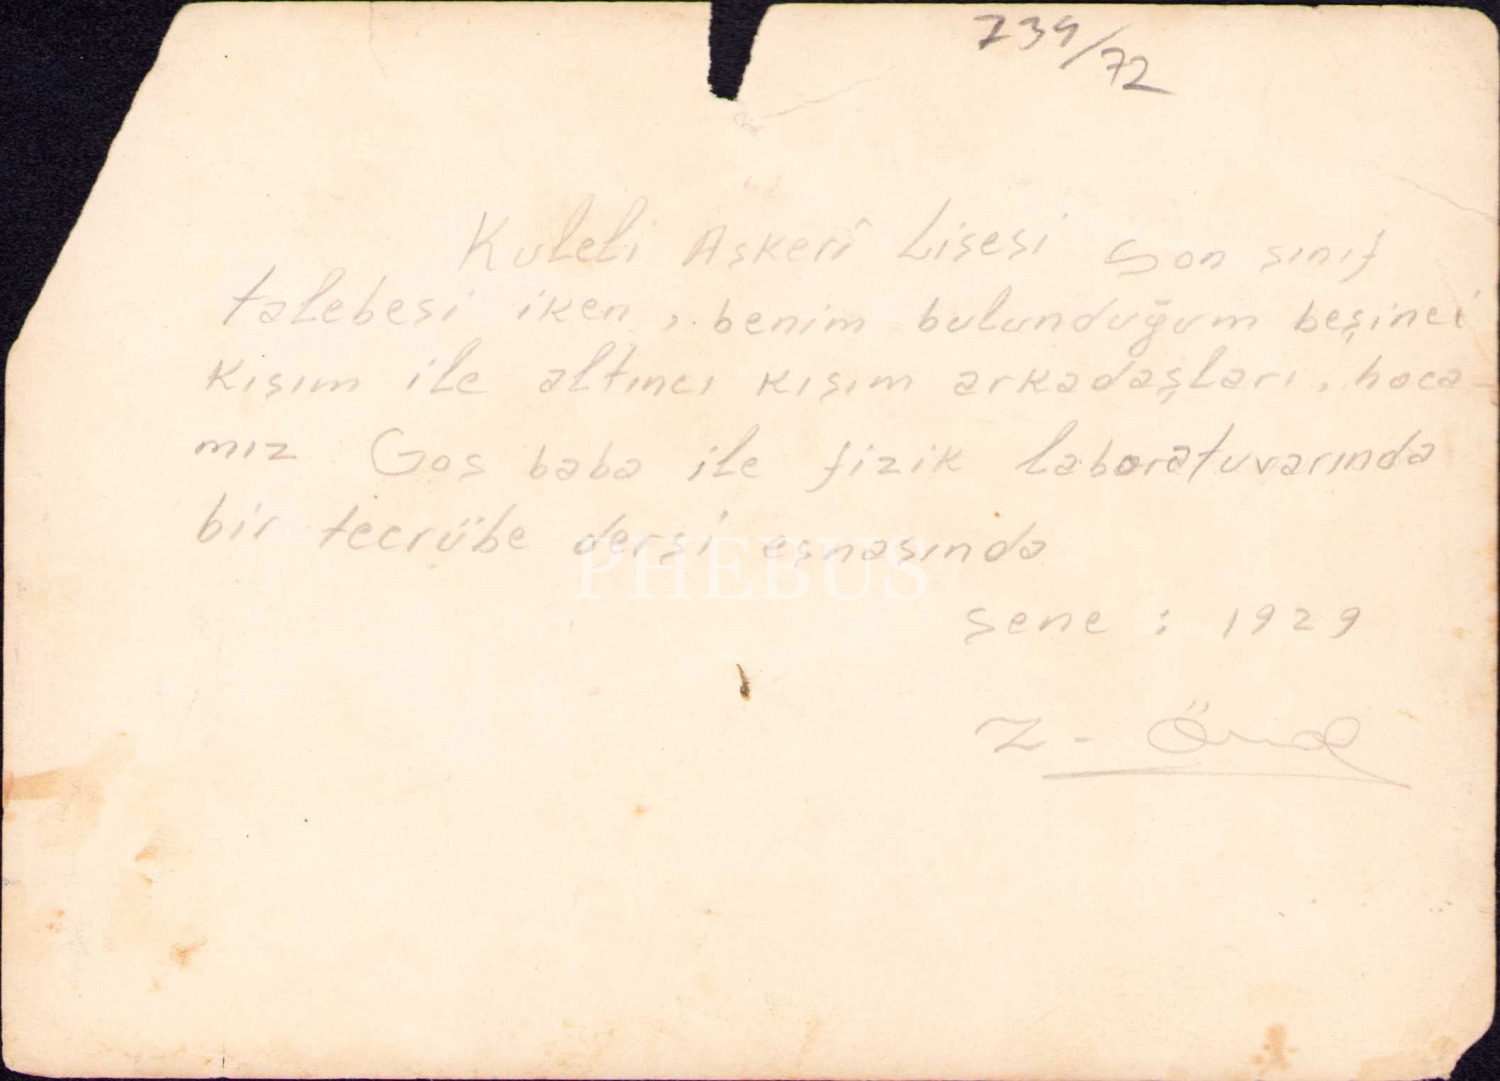 739/72
Kuleli Askerî Lisesi Son sınıf
talebesi iken, benim bulunduğum beşinci
kısım ile altıncı kısım arkadaşları, hoca-
mız Gos baba ile fizik laboratuvarında
bir tecrübe dersi esnasında
PHEBUS
sene : 1929
Z-